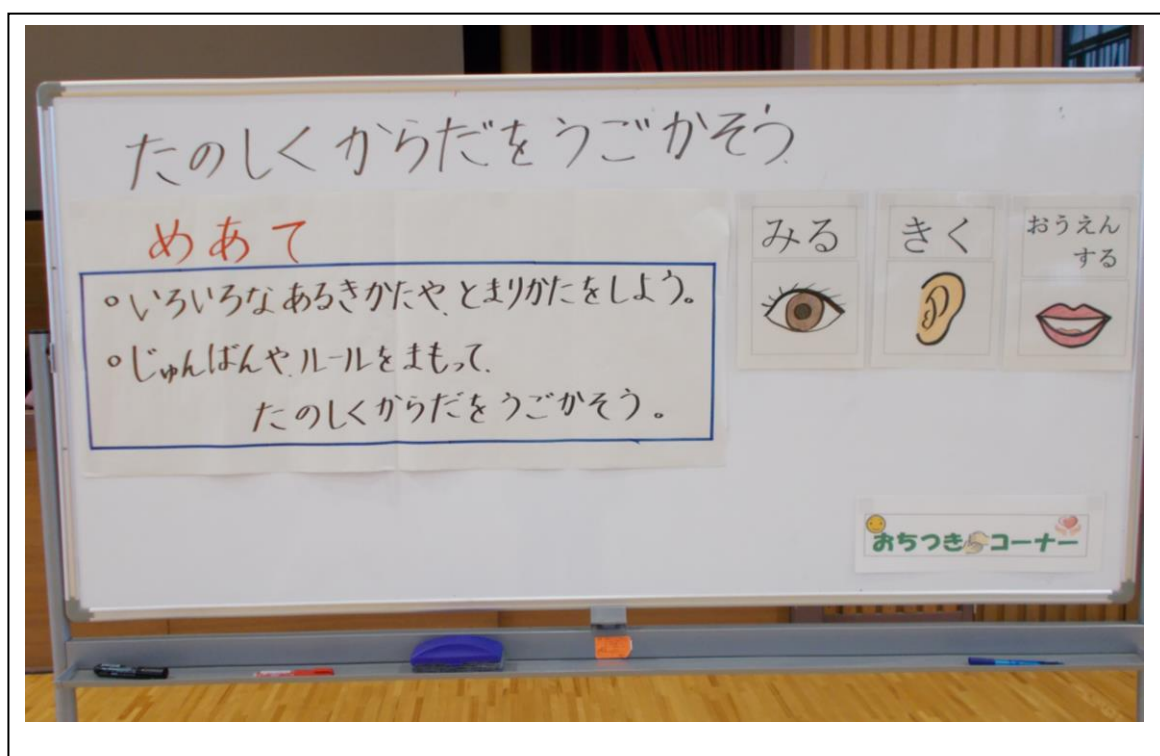 たのしくからだをうごかそう
めあて
○いろいろなあるきかたや、とまりかたをしよう。
○じゅんばんや、ルールをまもって、
たのしくからだをうごかそう。
みる
きく
おうえん
する
おちつきコーナー